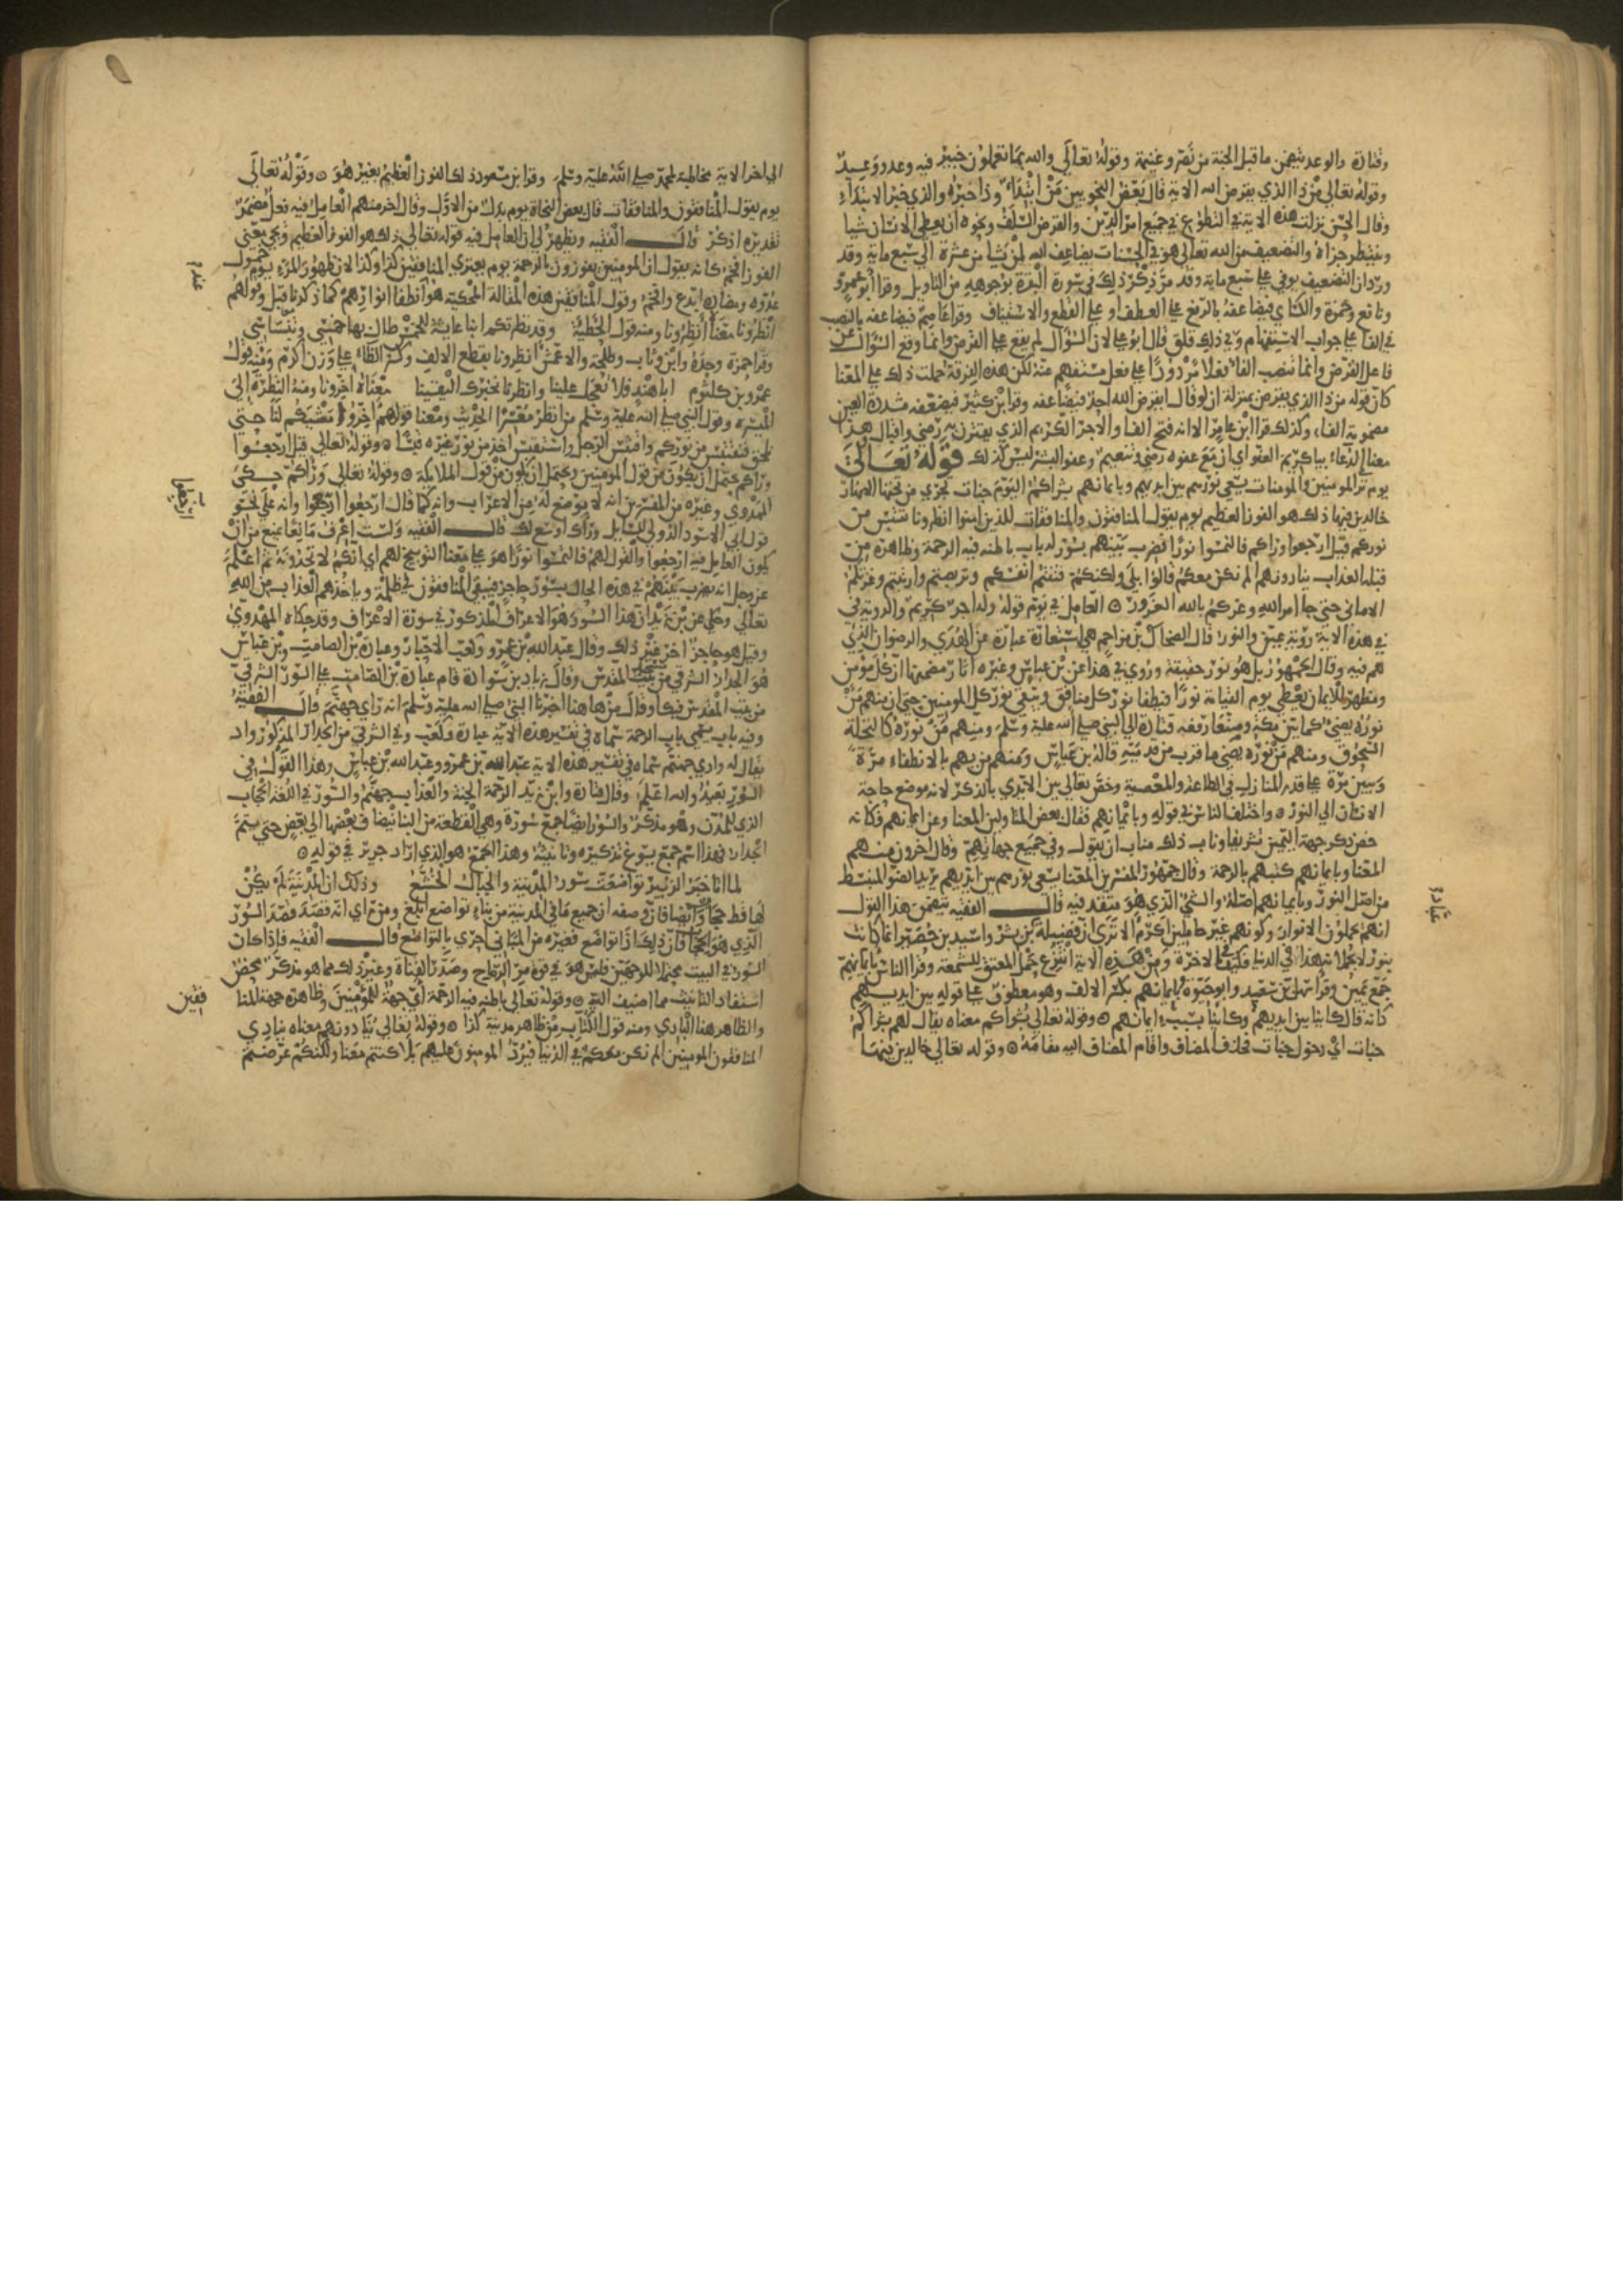 وقتادة والوعد يتضمن ما قبل الجنة من نصر وغنيمة وقوله تعالى والله بما تعملون خبير فيه وعد ووعيد
وقوله تعالى من ذا الذي يقرض الله الاية قال بعض النحويين من ابتداء وذا خبره والذي خبر الابتداء
وقال الحسن نزلت هذه الاية في التطوع في جميع امر الدين والقرض السلف ونحوه ان يعطي الانسان شيا
وينتظر جزاه والتضعيف من الله تعالى هو في الحسنات يضاعف الله لمن يشا من عشرة الي سبع ماية وقد
ورد ان التضعيف يوفي علي سبع ماية وقد مر ذكر ذلك في سورة البقرة بوجوهه من التاويل وقرا ابو عمرو
ونافع وحمزة والكساي فيضاعفه بالرفع علي العطف او علي القطع والاستيناف وقرا عاصم فيضاعفه بالنصب
في الفا علي جواب الاستفهام وفي ذلك قلق قال ابو علي لان السؤال لم يقع علي القرض وانما وقع السؤال عن
فاعل القرض وانما تنصب الفا فعلا مردودا علي فعل مستفهم عنه لكن هذه الفرقة حملت ذلك علي المعنا
كان قوله من ذا الذي يقرض بمنزلة ان لو قال ايقرض الله احد فيضاعفه وقرا ابن كثير فيضعفه مشددة العين
مضمومة الفاء وكذلك قرا ابن عامر الا انه فتح الفا والاجر الكريم الذي يقترن به رضي واقبال هذا
معنا الدعاء يا كريم العفو اي ان مع عفوه رضي وتنعيم وعفو البشر ليس كذلك قوله تعالى
يوم تر المومنين والمومنات يسعي نورهم بين ايديهم وبايمانهم بشراكم اليوم جنات تجري من تحتها الانهار
خالدين فيها ذلك هو الفوز العظيم يوم يقول المنافقون والمنافقات للذين امنوا انظرونا نقتبس من
نوركم قيل ارجعوا وراكم فالتمسوا نورا فضرب بينهم بسور له باب باطنه فيه الرحمة وظاهره من
قبله العذاب ينادونهم الم نكن معكم قالوا بلي ولكنكم فتنتم انفسكم وتربصتم وارتبتم وغرتكم
الاماني حتي جا امر الله وغركم بالله الغرور ۞ العامل في يوم قوله وله اجر كريم والروية في
هذه الاية روية عين والنور قال الضحاك بن مزاحم هي استعارة عبارة عن الهدي والرضوان الذي
هم فيه وقال الجمهور بل هو نور حقيقة وروي في هذا عن ابن عباس وغيره اثار مضمنها ان كل مومن
ومظهر للايمان يعطي يوم القيامة نورا فيطفا نور كل منافق ويبقي نور كل المومنين حتي ان منهم من
نوره يضيء كما بين مكة وصنعا رفعه قتادة الي النبي صلي الله عليه وسلم ومنهم من نوره كالنخلة
السحوق ومنهم من نوره يضي ما قرب من قدميه قاله بن عباس ومنهم من يهم بالانطفاء مرة
ويبين مرة علي قدر المنازل في الطاعة والمعصية وخص تعالي بين الايدي بالذكر لانه موضع حاجة
الانسان الي النور ۞ واختلف الناس في قوله وبايمانهم فقال بعض المتاولين المعنا وعن ايمانهم فكانه
خص ذكر جهة اليمين تشريفا وناب ذلك مناب ان يقول وفي جميع جهاتهم وقال اخرون منهم
المعنا وبايمانهم كتبهم بالرحمة وقال جمهور المفسرين المعنا يسعي نورهم بين ايديهم يريد الضو المنبسط
من اصل النور وبايمانهم اصله والشي الذي هو متقد فيه قال الفقيه يتضمن هذا القول
انهم يحملون الانوار وكونهم غير حاملين اكرم الا تري ان فضيلة عباد بن بشر واسيد بن حضير انما كانت
بنور لا يحملانه هذا في الدنيا فكيف في الاخرة ومن هذه الاية انتزع حمل المعتق للشمعة وقرا الناس بايمانهم
جمع يمين وقرا سهل بن سعيد وابو حيوة بايمانهم بكسر الالف وهو معطوف علي قوله بين ايديهم
كانه قال كاينا بين ايديهم وكاينا بسبب ايمانهم ۞ وقوله تعالي بشراكم معناه يقال لهم بشراكم
جنات اي دخول جنات فحذف المضاف واقام المضاف اليه مقامه ۞ وقوله تعالي خالدين فيها
عباد
الي اخر الاية مخاطبة لمحمد صلي الله عليه وسلم وقرا بن مسعود ذلك الفوز العظيم بغير هو ۞ وقوله تعالى
يوم يقول المنافقون والمنافقات قال بعض النحاة يوم بدل من الاول وقال اخر منهم العامل فيه فعل مضمر
تقديره اذكر قال الفقيه ويظهر لي ان العامل فيه قوله تعالي ذلك هو الفوز العظيم ويجي معني
الفوز افخم كانه يقول ان المومنين يفوزون بالرحمة يوم يعتري المنافقين كذا وكذا لان ظهور المرء يوم خمول
عدوه ومضاره ابدع وافخم وقول المنافقين هذه المقالة المحكية هو عند انطفا انوارهم كما ذكرنا قبل وقولهم
انظرونا معنا انتظرونا ومنه قول الحطيئة وقد نظرتكم ايناء عاشية للخمس طال بها حبسي وتنساسي
وقرا حمزة وحده وابن وثاب وطلحة والاعمش انظرونا بقطع الالف وكسر الظاء علي وزن اكرم ومنه قول
عمرو بن كلثوم ابا هند فلا تعجل علينا وانظرنا نخبرك اليقينا معناه اخرونا ومنه النظرة الي
الميسره وقول النبي صلي الله عليه وسلم من انظر معسرا الحديث ومعنا قولهم اخروا مشيكم لنا حتي
نلحق فنقتبس من نوركم واقتبس الرجل واستقبس اخذ من نور غيره قبسا ۞ وقوله تعالى قيل ارجعوا
وراكم يحتمل ان يكون من قول المومنين ويحتمل ان يكون من قول الملايكة ۞ وقوله تعالي وراكم حكي
المهدوي وغيره من المفسرين انه لا موضع له من الاعراب وانه كما قال ارجعوا ارجعوا وانه علي نحو
قول ابي الاسود الدولي للسايل وراك اوسع لك قال الفقيه ولست اعرف مانعا يمنع من ان
يكون العامل فيه ارجعوا والقول لهم فالتمسوا نورا هو علي معنا التوبيخ لهم اي انكم لا تجدونه ثم اعلم
عز وجل انه يضرب بينهم في هذه الحال بسور حاجز فيبقي المنافقون في ظلمة وياخذهم العذاب من الله
تعالي وحكي عن بن زيد ان هذا السور هو الاعراف المذكور في سورة الاعراف وقد حكاه المهدوي
وقيل هو حاجز اخر غير ذلك وقال عبد الله بن عمرو وكعب الاحبار وعبادة بن الصامت وبن عباس
هو الجدار الشرقي من مسجد بيت المقدس وقال زياد بن سوادة قام عبادة بن الصامت علي السور الشرقي
من بيت المقدس فبكا وقال من هاهنا اخبرنا النبي صلي الله عليه وسلم انه راي جهنم قال الفقيه
وفيه باب يسمي باب الرحمة سماه في تفسير هذه الاية عبادة وكعب وفي الشرقي من الجدار المذكور واد
يقال له وادي جهنم سماه في تفسير هذه الاية عبد الله بن عمرو وعبد الله بن عباس وهذا القول في
السور بعيد والله اعلم وقال قتادة وابن زيد الرحمة الجنة والعذاب جهنم والسور في اللغة الحجاب
الذي للمدن وهو مذكر والسور ايضا جمع سورة وهي القطعة من البنا يضاف بعضها الي بعض حتي يتم
الجدار فهذا اسم جمع يسوغ تذكيره وتانيثه وهذا الجمع هو الذي اراد جرير في قوله ۞
لما اتا خبر الزبير تواضعت سور المدينة والجبال الخشع وذلك ان المدينة لم يكن
لها قط حجا وايضا فان وصفه ان جميع ما في المدينة من بناء تواضع ابلغ ومن راي انه قصد قصد السور
الذي هو الحجا فان ذلك اذا تواضع فغيره من المباني احري بالتواضع قال الفقيه فاذا كان
السور في البيت محتملا للوجهين فليس هو في قوة مر الرياح وصدر القناة وغير ذلك مما هو مذكر محض
استفاد التانيث مما اضيف اليه ۞ وقوله تعالي باطنه فيه الرحمة اي جهة المومنين وظاهره جهة المنا
والظاهر هنا البادي ومنه قول الكتاب من ظاهر مدينة كذا ۞ وقوله تعالي ينادونهم معناه ينادي
المنافقون المومنين الم نكن معكم في الدنيا فيرد المومنون عليهم بلا كنتم معنا ولكنكم عرضتم
فقين